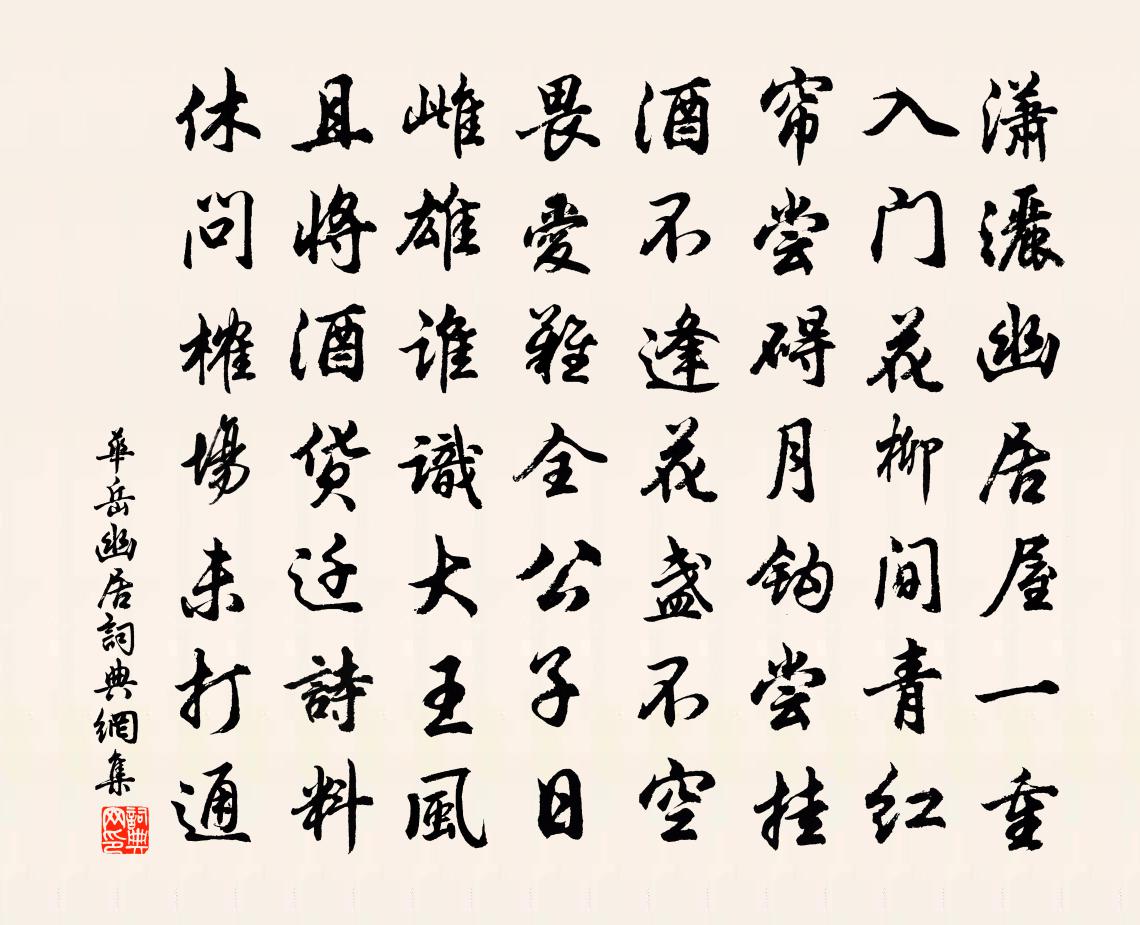 潇灑幽居屋一重
入门花柳间青红
帘尝碍月钩尝挂
酒不逢花盏不空
畏愛難全公子日
雌雄谁識大王風
且将酒货迁詩料
休问榷場未打通
華岳幽居詞典網集
詞典网印